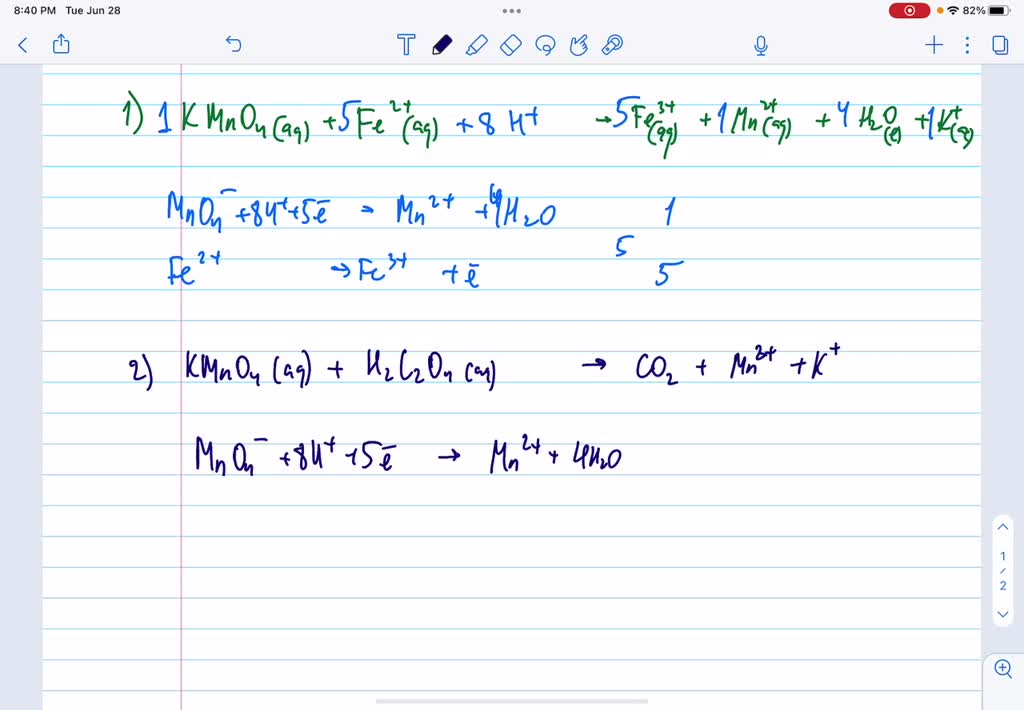 8:40 PM Tue Jun 28
82%
T
1) 1 KMnO₄(aq) + 5Fe²⁺(aq) + 8H⁺ → 5Fe³⁺(aq) + 1Mn²⁺(aq) + 4H₂O(l) + 1K⁺(aq)
MnO₄⁻ + 8H⁺ + 5ē = Mn²⁺ + 4H₂O 1
5
Fe²⁺ → Fe³⁺ + ē 5
2) KMnO₄(aq) + H₂C₂O₄(aq) → CO₂ + Mn²⁺ + K⁺
MnO₄⁻ + 8H⁺ + 5ē → Mn²⁺ + 4H₂O
1
/
2